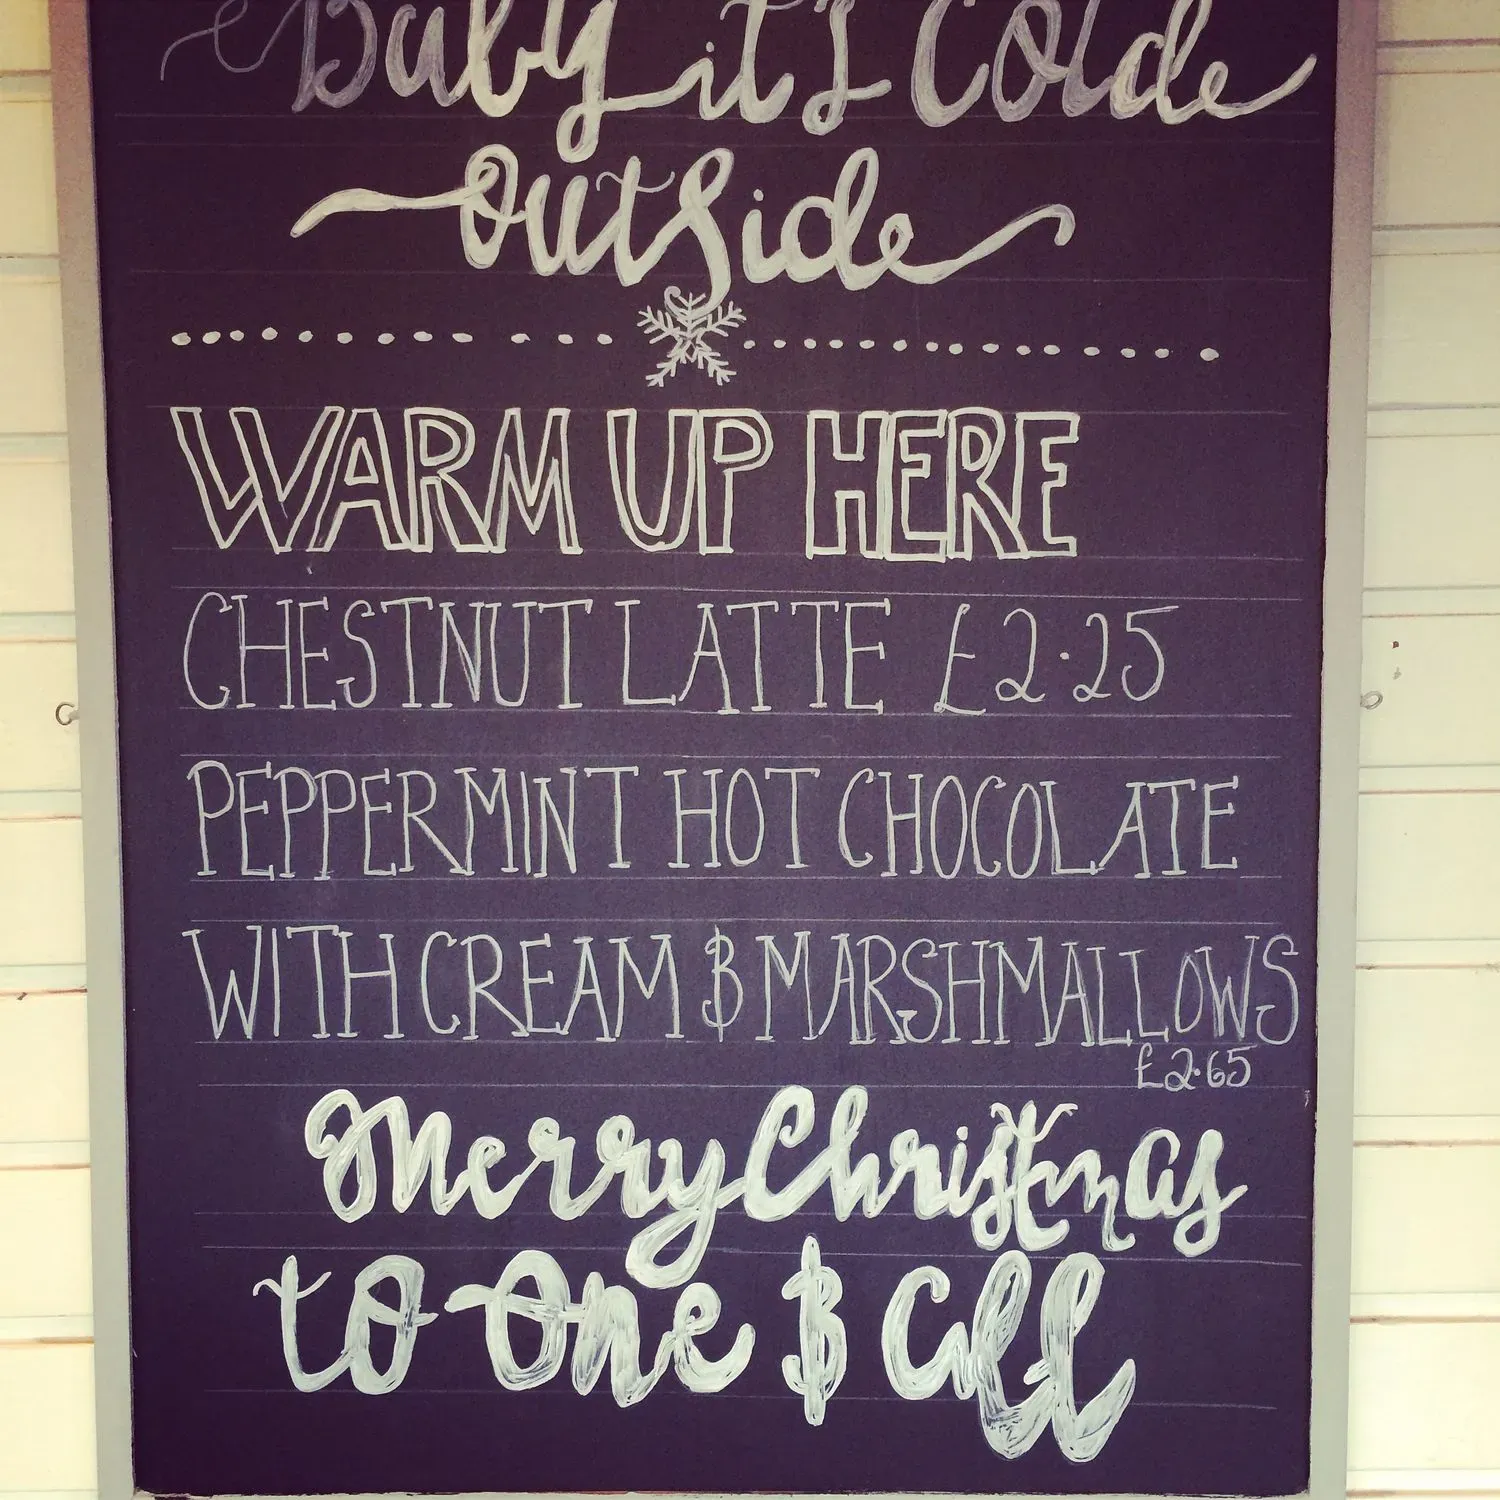 Baby it's Colde
outside
WARM UP HERE
CHESTNUT LATTE £2.25
PEPPERMINT HOT CHOCOLATE
WITH CREAM & MARSHMALLOWS
£2.65
Merry Christmas
to One & All